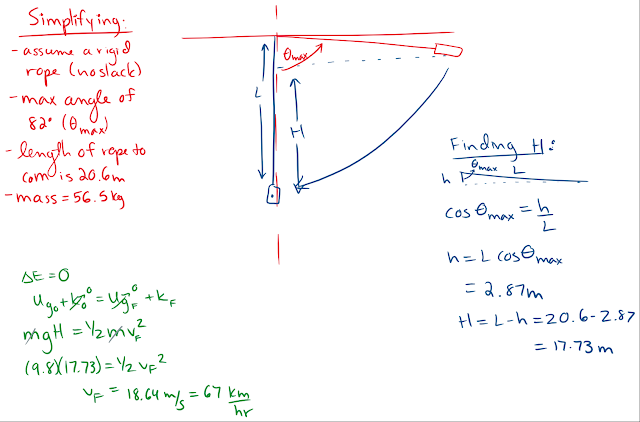 Simplifying:
- assume a rigid
rope (no slack)
- max angle of
82° (θmax)
- length of rope to
com is 20.6m
- mass = 56.5 kg
θmax
L
H
Finding H:
θmax
h
L
cos θmax = h/L
h = L cos θmax
= 2.87m
H = L - h = 20.6 - 2.87
= 17.73 m
ΔE = 0
Ug0 + K0^0 = UgF^0 + KF
mgH = 1/2 mvF^2
(9.8)(17.73) = 1/2 vF^2
vF = 18.64 m/s = 67 km/hr